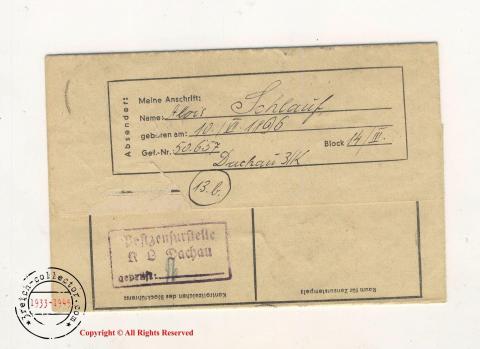 Absender:
Meine Anschrift:
Name: Alois Schlauf
geboren am: 10./VI. 1896
Gef.-Nr. 50.657 Block 14/III.
Dachau 3/K
13.b.
Postzensurstelle
K L Dachau
geprüft:
Kontrollzeichen des Blockführers
Raum für Zensurstempel
3reich-collector.com
1933-1945
Copyright © All Rights Reserved